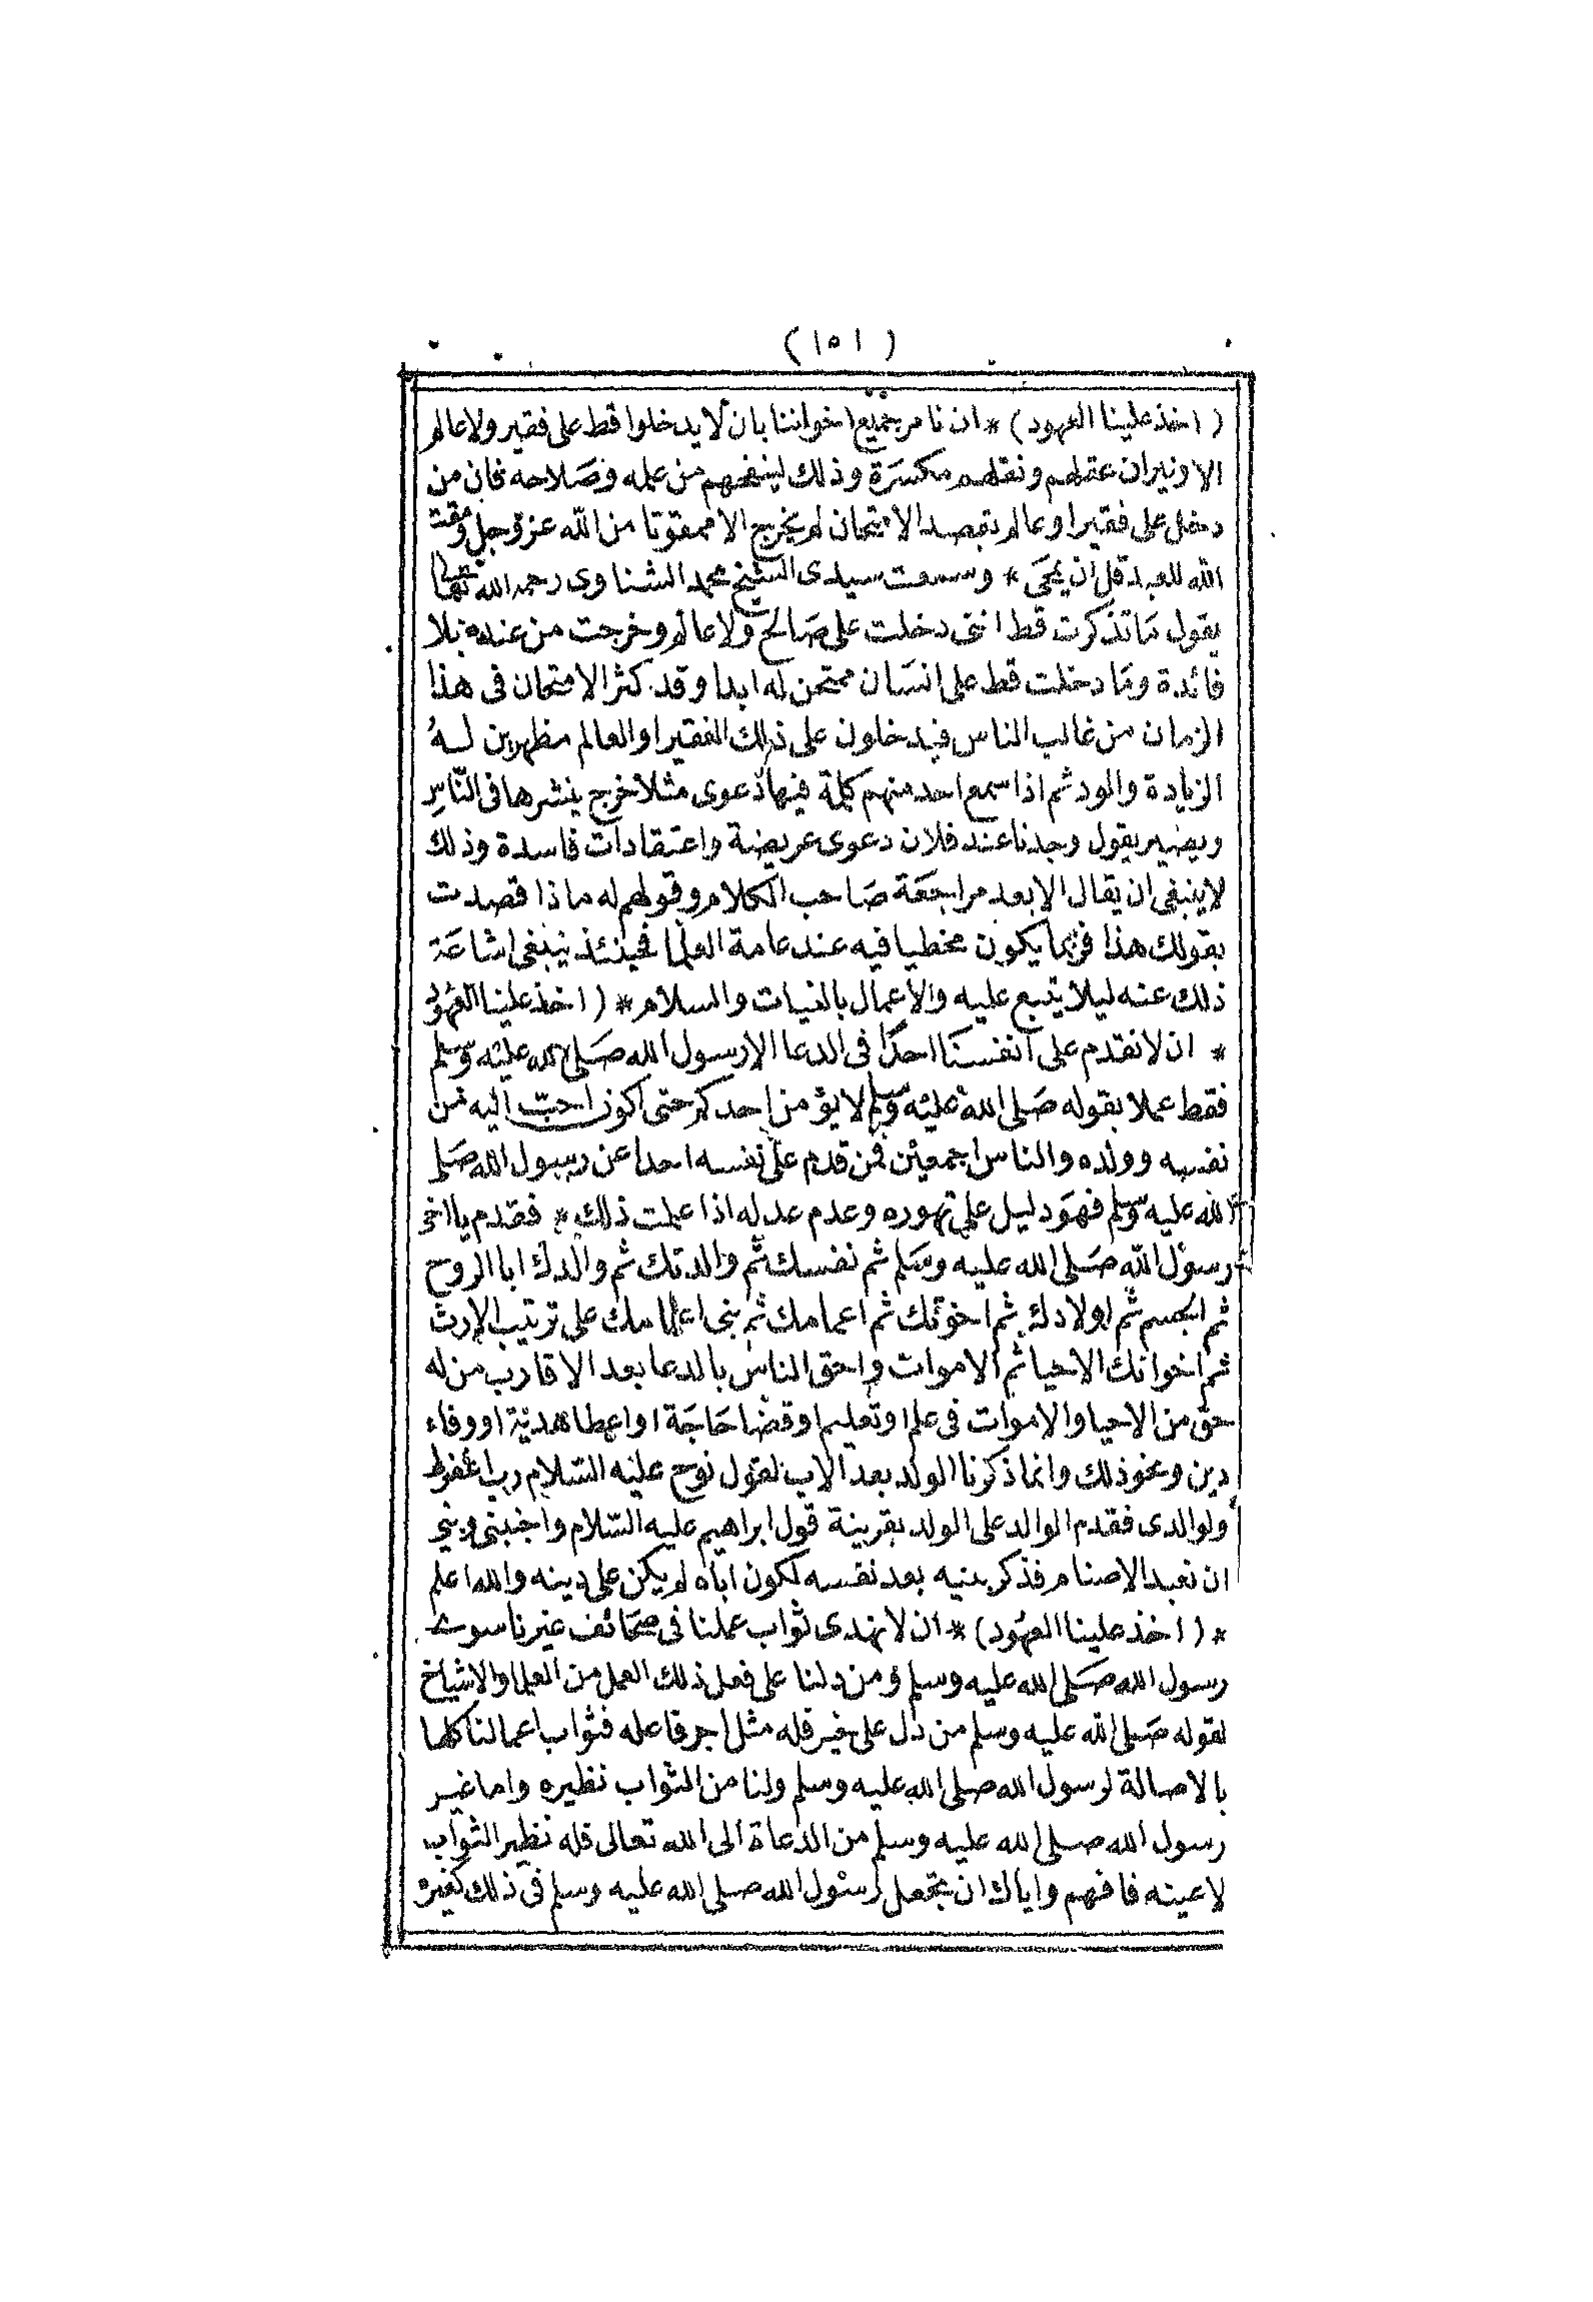 ( ١٥١ )
( اخذ علينا العهود ) * ان نامر جميع اخواننا بان لا يدخلوا قط على فقير ولا عالم
الا وميزان عقلهم ونقلهم مكسرة وذلك لينفحهم من علمه وصلاحه فان من
دخل على فقير او عالم بقصد الامتحان لم يخرج الا ممقوتا من الله عز وجل ومقت
الله للعبد قل ان يمحى * وسمعت سيدى الشيخ محمد الشناوى رحمه الله تعالى
يقول ما تذكرت قط اننى دخلت على صالح ولا عالم وخرجت من عنده بلا
فائدة وما دخلت قط على انسان ممتحن له ابدا وقد كثر الامتحان فى هذا
الزمان من غالب الناس فيدخلون على ذلك الفقير او العالم مظهرين له
الزيادة والود ثم اذا سمع احد منهم كلمة فيها دعوى مثلا خرج ينشرها فى الناس
ويصير يقول وجدنا عند فلان دعوى عريضة واعتقادات فاسدة وذلك
لا ينبغى ان يقال الا بعد مراجعة صاحب الكلام وقولهم له ماذا قصدت
بقولك هذا فربما يكون مخطيا فيه عند عامة العلما فحينئذ ينبغى اشاعة
ذلك عنه ليلا يتبع عليه والاعمال بالنيات والسلام * ( اخذ علينا العهود
* ان لا نقدم على انفسنا احدا فى الدعا الا رسول الله صلى الله عليه وسلم
فقط عملا بقوله صلى الله عليه وسلم لا يؤمن احدكم حتى اكون احب اليه من
نفسه وولده والناس اجمعين فمن قدم على نفسه احدا عن رسول الله صلى
الله عليه وسلم فهو دليل على تهوره وعدم عدله اذا علمت ذلك * فقدم يا اخى
رسول الله صلى الله عليه وسلم ثم نفسك ثم والدتك ثم والدك ابا الروح
ثم الجسم ثم اولادك ثم اخوتك ثم اعمامك ثم بنى اعمامك على ترتيب الارث
ثم اخوانك الاحيا ثم الاموات واحق الناس بالدعا بعد الاقارب من له
حق من الاحيا والاموات فى علم او تعليم او قضا حاجة او اعطا هدية او وفاء
دين ونحو ذلك وانما ذكرنا الولد بعد الاب لقول نوح عليه السلام رب اغفر لى
ولوالدى فقدم الوالد على الولد بقرينة قول ابراهيم عليه السلام واجنبنى وبنى
ان نعبد الاصنام فذكر بنيه بعد نفسه لكون اباه لم يكن على دينه والله اعلم
* ( اخذ علينا العهود ) * ان لا نهدى ثواب عملنا فى صحائف غيرنا سوى
رسول الله صلى الله عليه وسلم ومن دلنا على فعل ذلك العمل من العلما والاشياخ
لقوله صلى الله عليه وسلم من دل على خير فله مثل اجر فاعله فثواب اعمالنا كلها
بالاصالة لرسول الله صلى الله عليه وسلم ولنا من الثواب نظيره واما غير
رسول الله صلى الله عليه وسلم من الدعاة الى الله تعالى فله نظير الثواب
لا عينه فافهم واياك ان تجعل لرسول الله صلى الله عليه وسلم فى ذلك كغيره